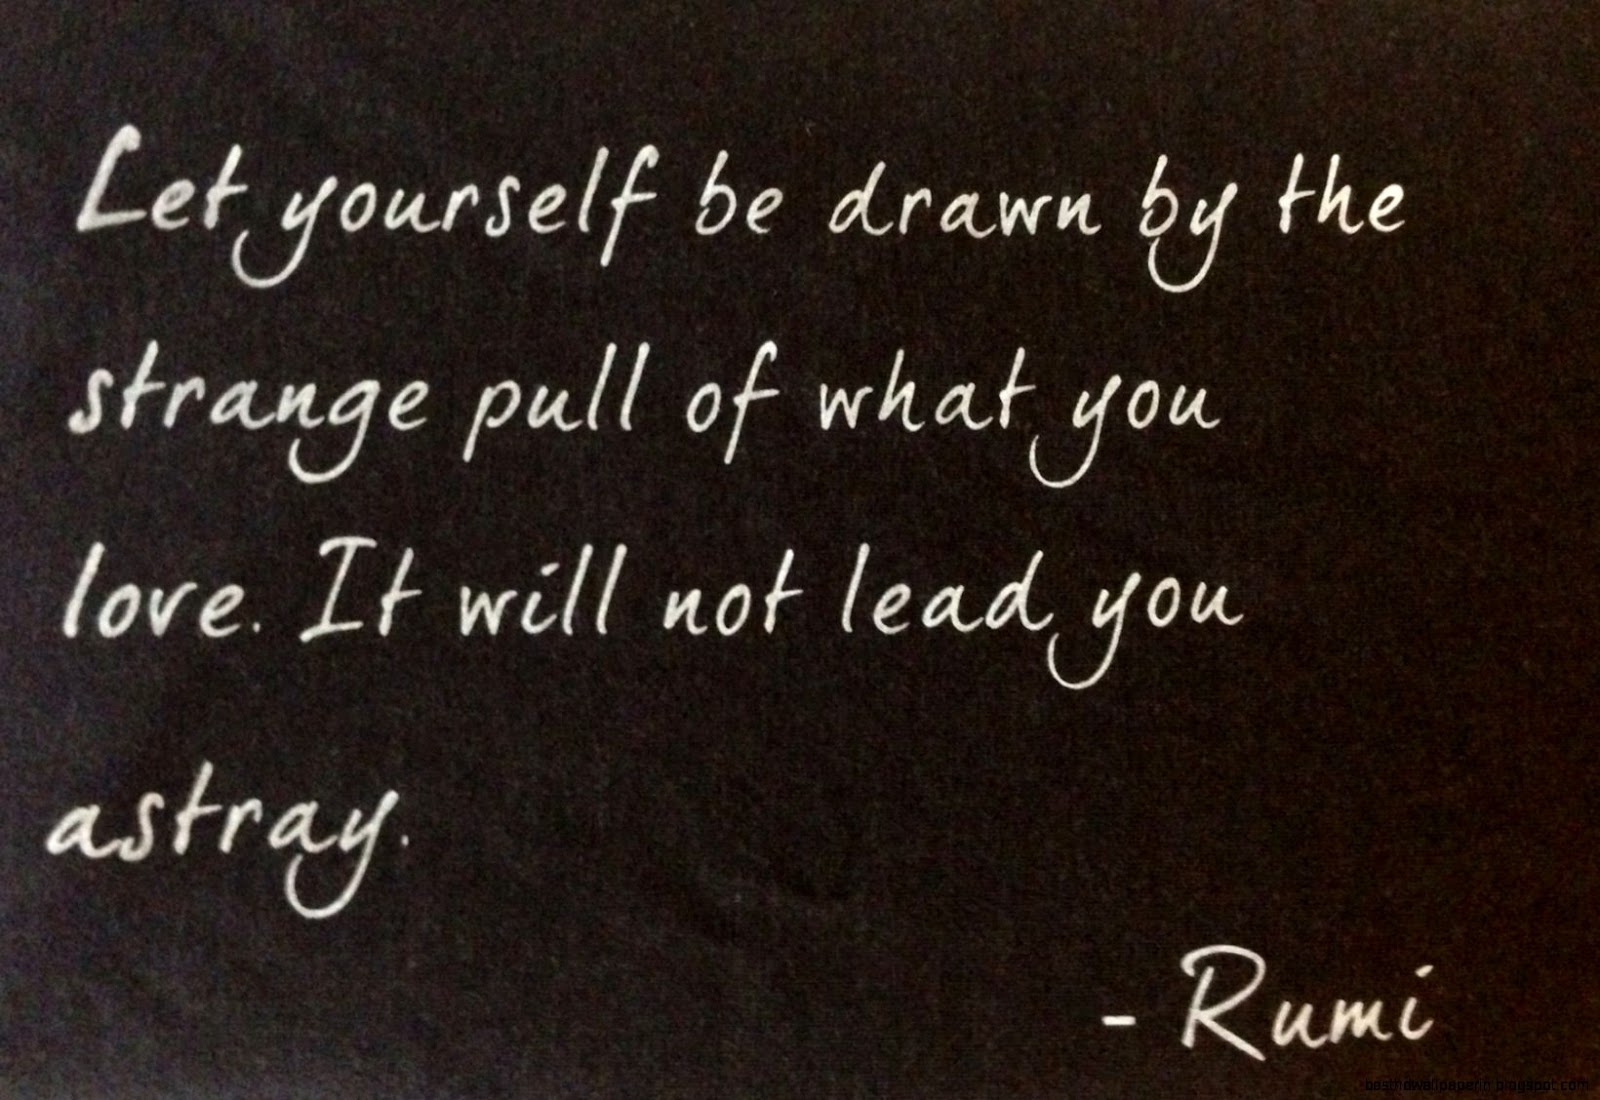 Let yourself be drawn by the
strange pull of what you
love. It will not lead you
astray.
- Rumi